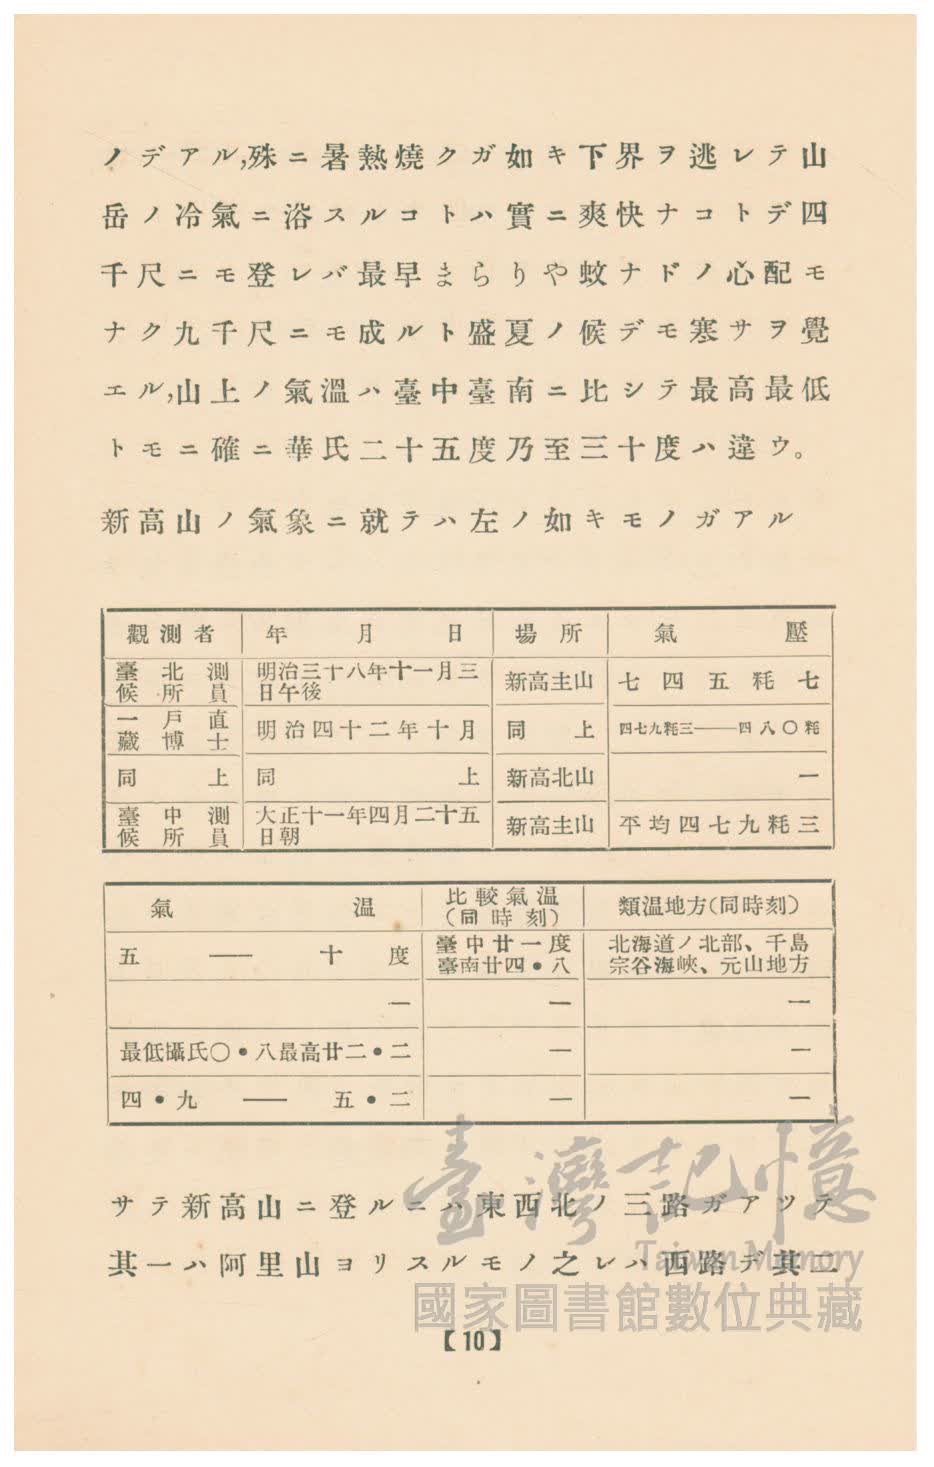 ノデアル,殊ニ暑熱燒クガ如キ下界ヲ逃レテ山
岳ノ冷氣ニ浴スルコトハ實ニ爽快ナコトデ四
千尺ニモ登レバ最早まらりや蚊ナドノ心配モ
ナク九千尺ニモ成ルト盛夏ノ候デモ寒サヲ覺
エル,山上ノ氣溫ハ臺中臺南ニ比シテ最高最低
トモニ確ニ華氏二十五度乃至三十度ハ違ウ。
新高山ノ氣象ニ就テハ左ノ如キモノガアル
觀測者 年月日 場所 氣壓
臺北測候所員 明治三十八年十一月三日午後 新高主山 七四五粍七
一戸直藏博士 明治四十二年十月 同上 四七九粍三——四八〇粍
同上 同上 新高北山 —
臺中測候所員 大正十一年四月二十五日朝 新高主山 平均四七九粍三
氣溫 比較氣溫(同時刻) 類溫地方(同時刻)
五——十度 臺中廿一度臺南廿四•八 北海道ノ北部、千島宗谷海峽、元山地方
— — —
最低攝氏〇•八最高廿二•二 — —
四•九——五•二 — —
サテ新高山ニ登ルニハ東西北ノ三路ガアツテ
其一ハ阿里山ヨリスルモノ之レハ西路デ其二
臺灣記憶
Taiwan Memory
國家圖書館數位典藏
【10】